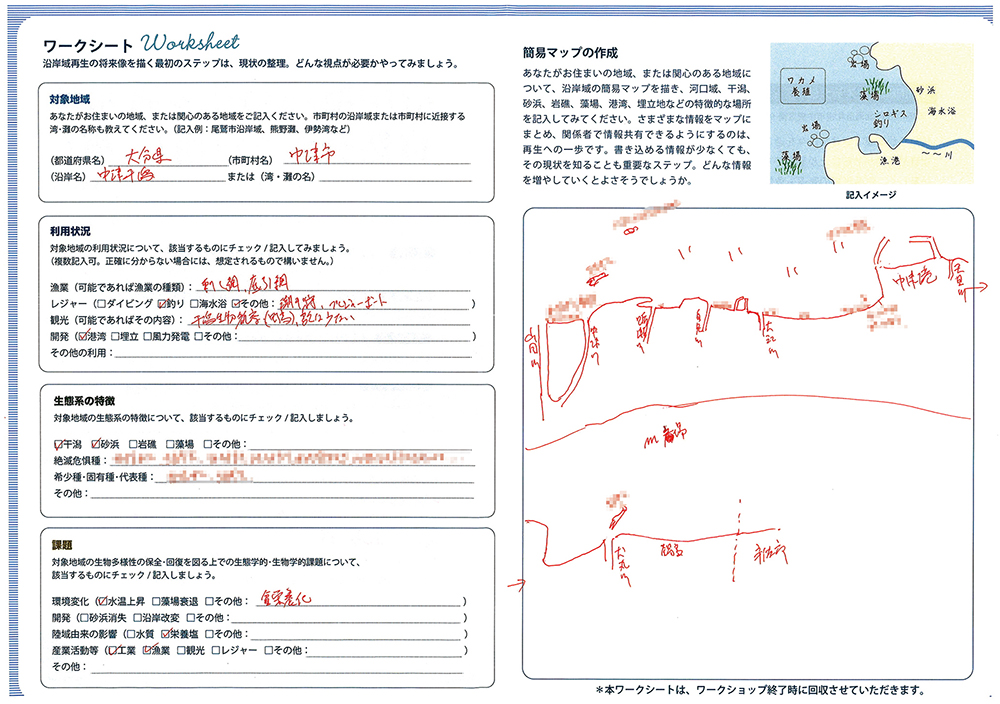 ワークシート Worksheet
沿岸域再生の将来像を描く最初のステップは、現状の整理。どんな視点が必要かやってみましょう。
対象地域
あなたがお住まいの地域、または関心のある地域をご記入ください。市町村の沿岸域または市町村に近接する
湾・灘の名称も教えてください。（記入例：尾鷲市沿岸域、熊野灘、伊勢湾など）
（都道府県名） 大分県 （市町村名） 中津市
（沿岸名） 中津干潟 または（湾・灘の名）
利用状況
対象地域の利用状況について、該当するものにチェック / 記入してみましょう。
（複数記入可。正確に分からない場合には、想定されるもので構いません。）
漁業（可能であれば漁業の種類）： 刺し網, 底引網
レジャー（□ダイビング ☑釣り □海水浴 ☑その他： 潮干狩, プレジャーボート ）
観光（可能であればその内容）： 干潟生物観察
開発（☑港湾 □埋立 □風力発電 □その他： ）
その他の利用：
生態系の特徴
対象地域の生態系の特徴について、該当するものにチェック / 記入しましょう。
☑干潟 ☑砂浜 □岩礁 □藻場 □その他：
絶滅危惧種：
希少種・固有種・代表種：
その他：
課題
対象地域の生物多様性の保全・回復を図る上での生態学的・生物学的課題について、
該当するものにチェック / 記入しましょう。
環境変化（☑水温上昇 □藻場衰退 □その他： 貧栄養化 ）
開発（□砂浜消失 □沿岸改変 □その他： ）
陸域由来の影響（□水質 ☑栄養塩 □その他： ）
産業活動等（☑工業 ☑漁業 □観光 □レジャー □その他： ）
その他：
簡易マップの作成
あなたがお住まいの地域、または関心のある地域に
ついて、沿岸域の簡易マップを描き、河口域、干潟、
砂浜、岩礁、藻場、港湾、埋立地などの特徴的な場所
を記入してみてください。さまざまな情報をマップに
まとめ、関係者で情報共有できるようにするのは、
再生への一歩です。書き込める情報が少なくても、
その現状を知ることも重要なステップ。どんな情報
を増やしていくとよさそうでしょうか。
岩場
ワカメ
養殖
藻場
砂浜
海水浴
シロギス
釣り
岩場
藻場
漁港
～～川
記入イメージ
中津港
山国川
中津川
蛎瀬川
自見川
犬丸川
犬丸川
宇佐市
＊本ワークシートは、ワークショップ終了時に回収させていただきます。